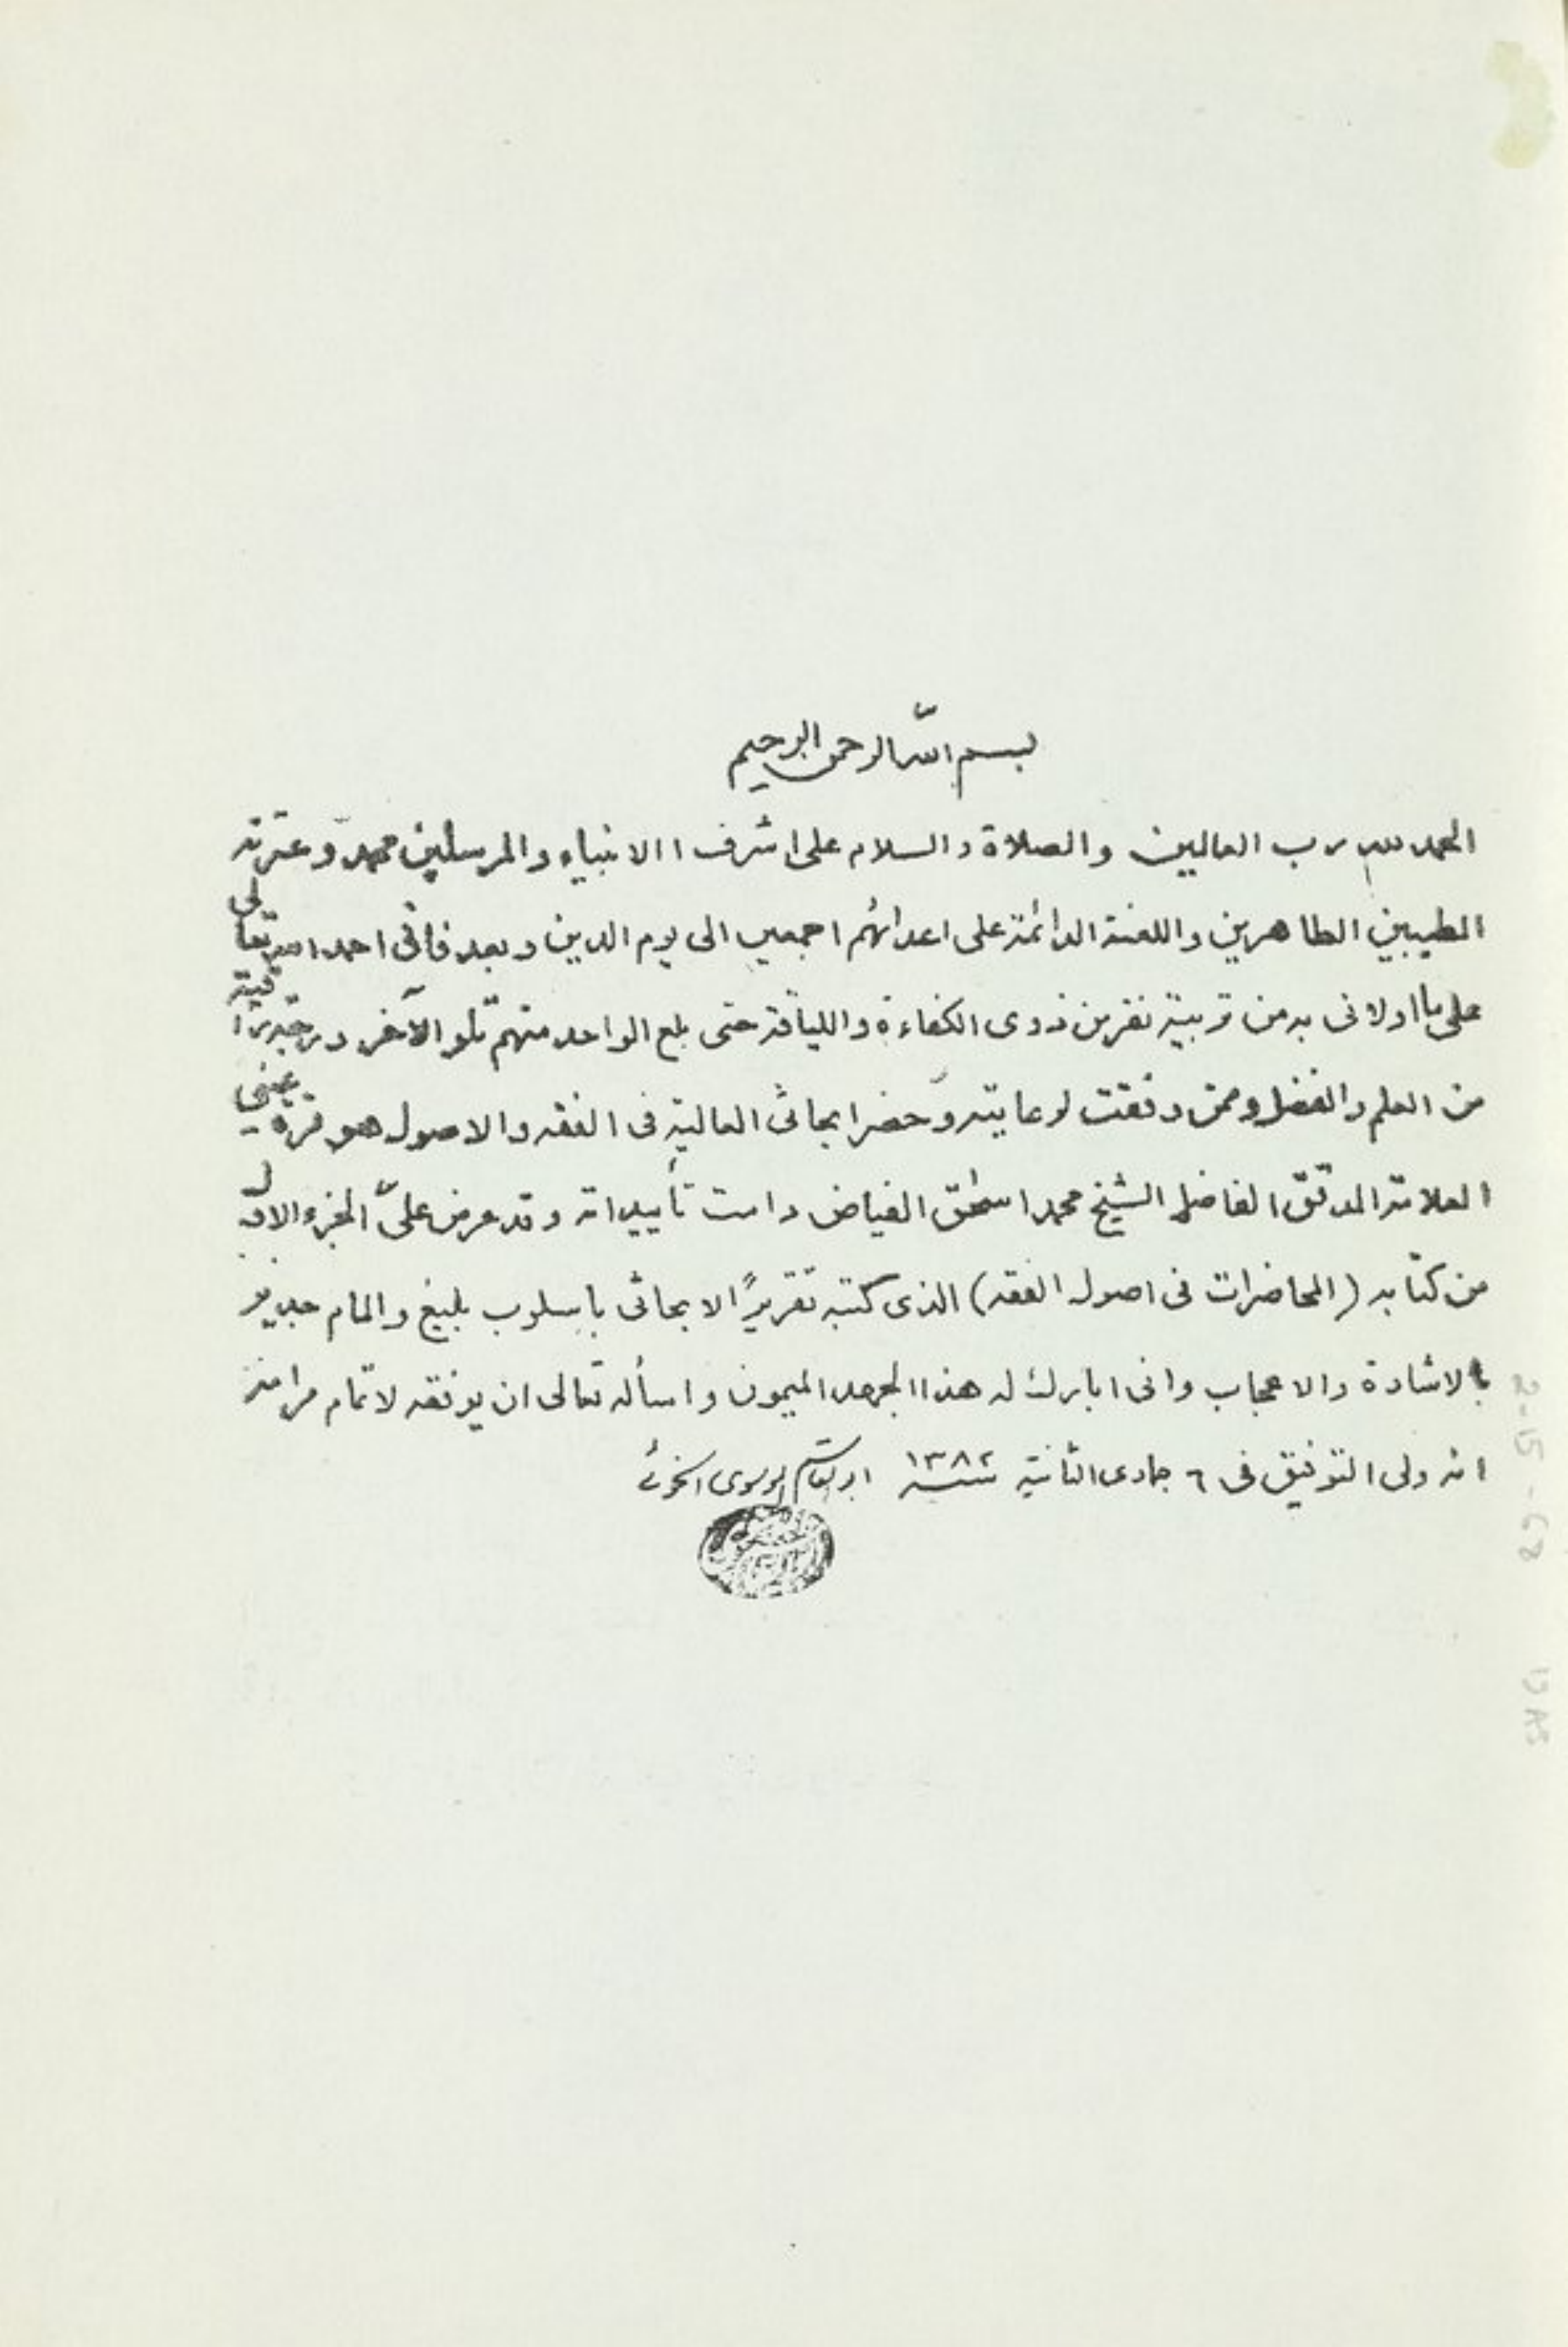 بسم الله الرحمن الرحيم
الحمد لله رب العالمين والصلاة والسلام على اشرف الانبياء والمرسلين محمد وعترته
الطيبين الطاهرين واللعنة الدائمة على اعدائهم اجمعين الى يوم الدين وبعد فانى احمد الله تعالى
على ما اولانى به من تربية نفر من ذوى الكفاءة واللياقة حتى بلغ الواحد منهم تلو الآخر درجة راقية
من العلم والفضل وممن وفقت لرعايته وحضر ابحاثى العالية فى الفقه والاصول هو قرة عينى
العلامة المدقق الفاضل الشيخ محمد اسحٰق الفياض دامت تأييداته وقد عرض علىّ الجزء الاول
من كتابه (المحاضرات فى اصول الفقه) الذى كتبه تقريرًا لابحاثى باسلوب بليغ والمام جدير
بالاشادة والاعجاب وانى ابارك له هذا الجهد الميمون واسأله تعالى ان يوفقه لاتمام مرامه
انه ولى التوفيق فى ٦ جمادى الثانية سنة ١٣٨٢ ابو القاسم الموسوى الخوئى
2-15-68